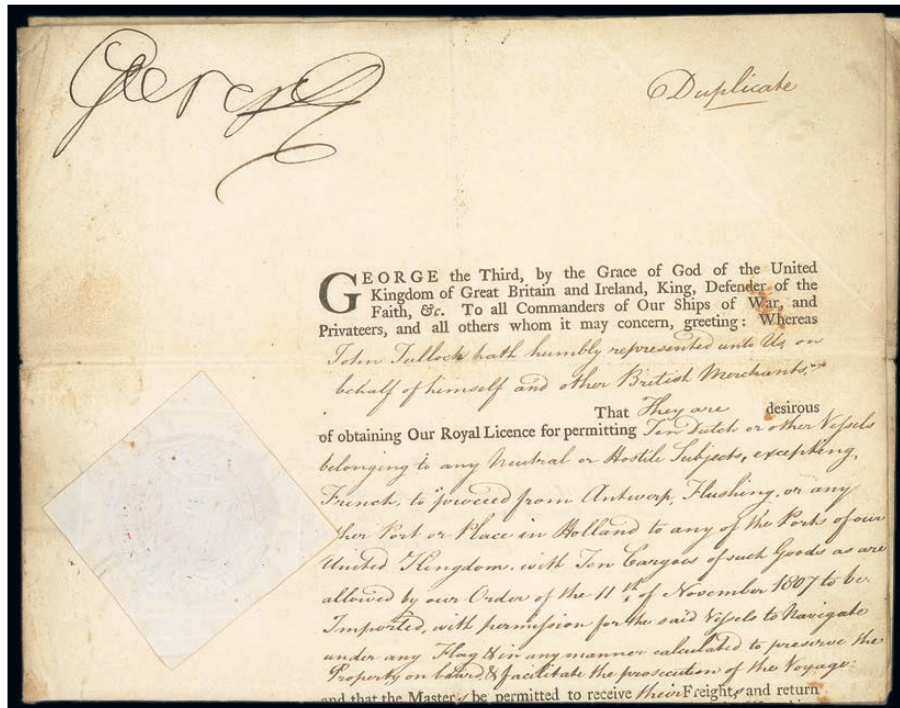 George R
Duplicate
GEORGE the Third, by the Grace of God of the United
Kingdom of Great Britain and Ireland, King, Defender of the
Faith, &c. To all Commanders of Our Ships of War, and
Privateers, and all others whom it may concern, greeting: Whereas
John Tulloch hath humbly represented unto Us, on
behalf of himself and other British Merchants,
That They are desirous
of obtaining Our Royal Licence for permitting Ten Dutch or other Vessels
belonging to any Neutral or Hostile Subjects, excepting
French, to proceed from Antwerp, Flushing, or any
other Port or Place in Holland to any of the Ports of our
United Kingdom, with Ten Cargoes of such Goods as are
allowed by our Order of the 11th of November 1807 to be
Imported, with permission for the said Vessels to Navigate
under any Flag & in any manner calculated to preserve the
Property on board, & facilitate the prosecution of the Voyage:
and that the Masters be permitted to receive their Freights, and return